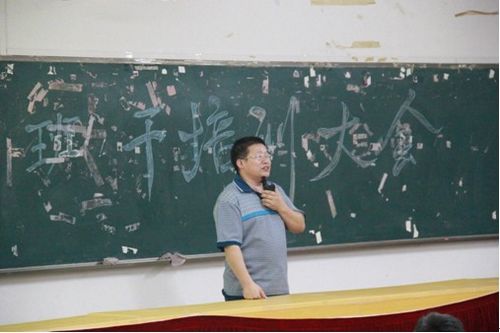 班子培训大会